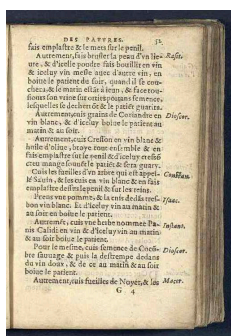 DES PAVVRES. 52
fais emplastre & le mets sur le penil.
Autrement, fais brusler la peau d'vn lie-
ure, & d'icelle poudre fais bouillir en vin
& iceluy vin mesle auec d'autre vin, en
boiue le patient du soir, quand il se cou-
chera, & le matin estāt à ieun, & face tou-
siours son vrine sur
lesquelles se & le patiēt guarira.
Autrement, grains de Coriandre en
vin blanc, & d'iceluy boiue le patient au
matin & au soir.
Autrement, cuit Cresson en vin blanc &
huille d'oliue, broye tout ensemble & en
fais emplastre sur le penil & d'iceluy cresson
creu mange souuēt le patiēt & sera guary.
Cuis les fueilles d'vn arbre qui est appel-
lé Sauin, & les cuis en vin blanc & en fais
emplastre dessus le penil & sur les reins.
Prens vne pomme, & la cuis dedās tres-
bon vin blanc. Et d'iceluy vin au matin &
au soir en boiue le patient.
Autremēt, cuis vne herbe nommee Pa-
nis en vin & d'iceluy vin au matin
& au soir boiue le patient.
Pour le mesme, cuis semence de Cocō-
bre sauuage & puis la destrempe dedans
du vin doux, & de ce au matin & au soir
boiue le patient.
Autrement, cuis fueilles de Noyer, & les
G 4
Rasis.
Dioscor.
Isaac.
Dioscor.
Macer.